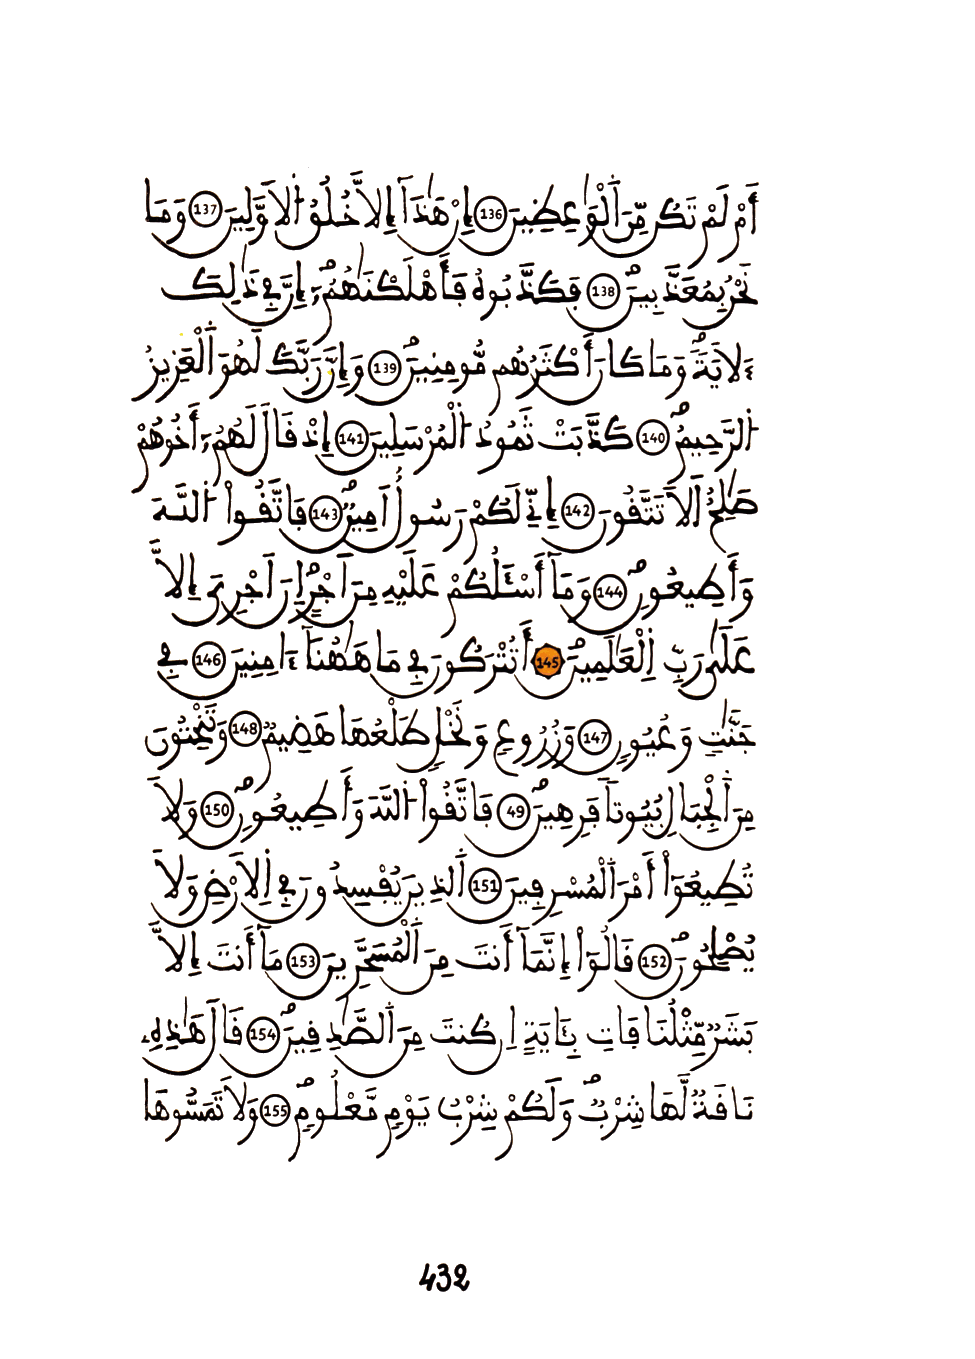 أَمْ لَمْ تَكُن مِّنَ ٱلْوَٰعِظِينَ 136 إِنْ هَٰذَآ إِلَّا خُلُقُ ٱلَاوَّلِينَ 137 وَمَا
نَحْنُ بِمُعَذَّبِينَ 138 فَكَذَّبُوهُ فَأَهْلَكْنَٰهُمُۥٓ إِنَّ فِے ذَٰلِكَ
ءَلَايَةٗ وَمَا كَانَ أَكْثَرُهُم مُّومِنِينَ 139 وَإِنَّ رَبَّكَ لَهُوَ ٱلْعَزِيزُ
ٱلرَّحِيمُ 140 كَذَّبَتْ ثَمُودُ ٱلْمُرْسَلِينَ 141 إِذْ قَالَ لَهُمُۥٓ أَخُوهُمْ
صَٰلِحٌ اَلَا تَتَّقُونَ 142 إِنِّے لَكُمْ رَسُولٌ اَمِينٞ 143 فَاتَّقُواْ ٱللَّهَ
وَأَطِيعُونِ 144 وَمَآ أَسْـَٔلُكُمْ عَلَيْهِ مِنَ اَجْرٍ اِنَ اَجْرِيَ إِلَّا
عَلَىٰ رَبِّ ٱِلْعَٰلَمِينَ 145 أَتُتْرَكُونَ فِے مَا هَٰهُنَآ ءَامِنِينَ 146 فِے
جَنَّٰتٖ وَعُيُونٖ 147 وَزُرُوعٖ وَنَخْلٖ طَلْعُهَا هَضِيمٞ 148 وَتَنْحِتُونَ
مِنَ ٱلْجِبَالِ بُيُوتاٗ فَرِهِينَ 49 فَاتَّقُواْ ٱللَّهَ وَأَطِيعُونِ 150 وَلَا
تُطِيعُوٓاْ أَمْرَ ٱلْمُسْرِفِينَ 151 ٱَلذِينَ يُفْسِدُونَ فِے ٱِلَارْضِ وَلَا
يُصْلِحُونَ 152 قَالُوٓاْ إِنَّمَآ أَنتَ مِنَ ٱَلْمُسَحَّرِينَ 153 مَآ أَنتَ إِلَّا
بَشَرٞ مِّثْلُنَا فَاتِ بِـَٔايَةٍ اِن كُنتَ مِنَ ٱَلصَّٰدِقِينَ 154 قَالَ هَٰذِهِۦ
نَاقَةٞ لَّهَا شِرْبٞ وَلَكُمْ شِرْبُ يَوْمٖ مَّعْلُومٖ 155 وَلَا تَمَسُّوهَا
432